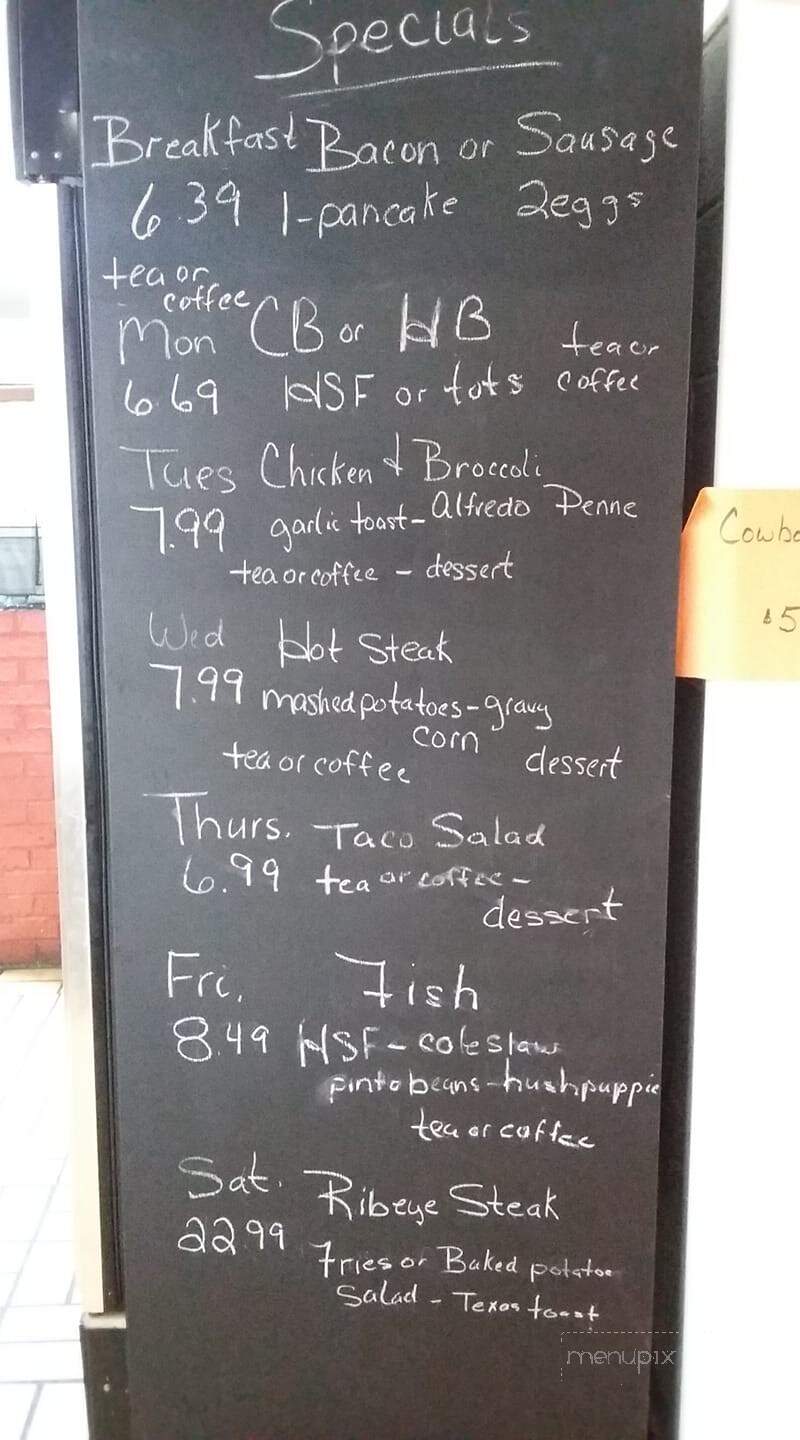 Specials
Breakfast Bacon or Sausage
6.39 1-pancake 2eggs
tea or
coffee
Mon CB or HB
6.69 HSF or tots
tea or
coffee
Tues Chicken & Broccoli
7.99 garlic toast - Alfredo Penne
tea or coffee - dessert
Wed Hot Steak
7.99 mashed potatoes - gravy
corn
tea or coffee dessert
Thurs. Taco Salad
6.99 tea or coffee -
dessert
Fri. Fish
8.49 HSF - coleslaw
pinto beans - hushpuppie
tea or coffee
Sat. Ribeye Steak
22.99 Fries or Baked potatoe
Salad - Texas toast
Cowbo
$5
menupix